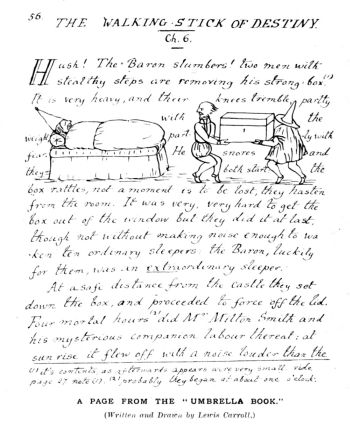 56.
THE WALKING-STICK OF DESTINY.
Ch. 6.
Hush! The Baron slumbers! two men with
stealthy steps are removing his strong-box(1)
It is very heavy, and their knees tremble, partly
with the
weight part- ly with
fear. He snores and
they both start: the
box rattles, not a moment is to be lost, they hasten
from the room. It was very, very hard to get the
box out of the window but they did it at last,
though not without making noise enough to wa-
-ken ten ordinary sleepers: the Baron, luckily
for them, was an extraordinary sleeper.
At a safe distance from the castle they set
down the box, and proceeded to force off the lid.
Four mortal hours(2) did Mr Milton Smith and
his mysterious companion labour thereat; at
sunrise it flew off with a noise louder than the
(1) it's contents as afterwards appears were very small. vide
page 27 note (1). (2) probably they began at about one o'clock.
A PAGE FROM THE "UMBRELLA BOOK."
(Written and Drawn by Lewis Carroll.)